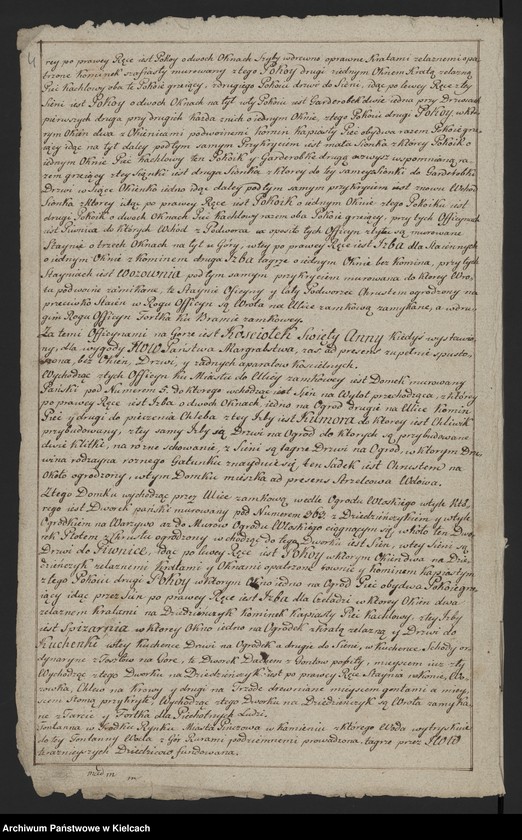 4
rey po prawey Ręce iest Pokoy o dwoch Oknach Szyby w drzewo oprawne Kratami zelaznemi opa-
trzone Kominek szafiasty murowany z tego Pokoy drugi z iednym Oknem Kratą zelazną
Piec Kachlowy oba te Pokoie grzeiący, z drugiego Pokoiu drzwi do Sieni, idąc po lewey Ręce z tey
Sieni iest Pokoy o dwoch Oknach na tył w tey Pokoiu iest Garderobek dwie iedna przy Drzwiach
pierwszych druga przy drugich każda z nich o iednym Oknie, z tego Pokoiu drugi Pokoy w któ-
rym Okien dwa z Okienicami podwoynemi komin Kapiasty Piec obydwa razem Pokoie grze-
iący idąc na tył daley pod tym samym Przykryciem iest mała Sionka z ktorey Pokoik o
iednym Oknie Piec kachlowy ten Pokoik y Garderobkę drugą wzwysz wspomnioną ra-
zem grzeiący z tey Sionki iest druga Sionka z ktorey do tey samey Sionki do Garderobki
Drzwi w Sionce Okienko iedno idąc daley pod tym samym przykryciem iest znowu Wchod
Sionka z ktorey idąc po prawey Ręce iest Pokoik o iednym Oknie z tego Pokoiku iest
drugi Pokoik o dwoch Oknach Piec Kachlowy razem oba Pokoie grzeiący, przy tych Officynach
iest Piwnica do ktorych Wchod z Podworza w oposit tych Officyn z tyłu są murowane
Staynie o trzech Oknach na tył w Gory, w tey po prawey Ręce iest Izba dla Staiennych
o iednym Oknie z kominem druga Izba tagże o iednym Oknie bez komina, przy tych
Stayniach iest Wozownia pod tym samym przykryciem murowana do ktorey Wro-
ta podwoine zamikane, te Staynie Oficyny y cały Podworzec Chrustem ogrodzony na
przeciwko Staien w Rogu Officyn są Wrota na Ulicę zamkową zamykane, a w dru-
gim Rogu Officyn Fortka ku Bramie zamkowey.
Za temi Officynami na Gorze iest Kosciołek Swięty Anny Kiedyś wystawio-
ny dla wygody JKOW Panstwa Margrabstwa, zaś ad presens zupełnie spusto-
szona, bez Okien, Drzwi, y żadnych aparatow koscielnych.
Wychodząc z tych Officyn ku Miastu do Ulicy zamkowey iest Domek murowany
Panski pod Numerem 5. do ktorego wchodząc iest Sień na Wylot przechodząca, z ktorey
po prawey Ręce iest Izba o dwoch Oknach, iedno na Ogrod drugie na Ulicę Komin
Piec y drugi do pieczenia Chleba z tey Izby iest Kumora do ktorey iest Chliwik
przybudowany, z tey samy Izby są Drzwi na Ogrod do ktorych są przybudowane
dwie Klitki, na rożne schowanie, z Sieni są tagże Drzwi na Ogrod, w ktorym Drze-
wina rodzayna rożnego Gatunku znayduie się, ten Sadek iest Chrustem na
około ogrodzony, w tym Domku mieszka ad presens Strzelcowa Wdowa.
Z tego Domku wychodząc przez Ulicę zamkową wedle Ogrodu Włoskiego w tyle Któ-
rego iest Dworek panski murowany pod Numerem 262. z Dziedzinczykiem y w tyle
Ogrodkiem na Warzywo aż do Murow Ogrodu Włoskiego ciągnącym się, w koło ten Dwo-
rek Płotem Chrustu ogrodzony wchodząc do tego Dworku iest Sień, w tey Sieni są
Drzwi do Piwnice, idąc po lewey Ręce iest Pokoy w ktorym Okien dwa na Dzie-
dzinczyk zelaznemi Kratami y Oknami opatrzone rownie y kominem kapiastym
z tego Pokoiu drugi Pokoy w ktorym Okno iedno na Ogrod Piec obydwa Pokoie grze-
iący idąc przez Sień po prawey Ręce iest Izba dla Czeladzi w ktorey Okien dwa
zelaznem Kratami na Dziedzinczyk Kominek Kapiasty Piec Kachlowy, z tey Izby
iest Spizarnia w ktorey Okno iedno na Ogrodek z Kratą zelazną y Drzwi do
Kuchenki w tey Kuchence Drzwi na Ogrodek a drugie do Sieni, w Kuchence Schody or-
dynaryne z Fortow na Gorę, te Dworek Dachem z Gontow pobity, mieyscem iuż zły
Wychodząc z tego Dworku na Dziedzinczyk iest po prawey Ręce Staynia w konie, Wo-
zowka, Chlew na Krowy y drugi na Trzodę drewniane mieyscem gontami a miey-
scem Słomą przykryte, Wychodząc z tego Dworku na Dziedzinczyk są Wrota zamyka-
ne z Tarcic y Fortka dla Piechotnych Ludzi.
Fontanna w Srodku Rynku Miasta Pinczowa w kamieniu z ktorego Woda wytryskuie
do tey Fontanny Woda z Gor Rurami podziemnemi prowadzona tagże przez JKOW
teraznieyszych Dziedzicow fundowana.
Archiwum Państwowe w Kielcach